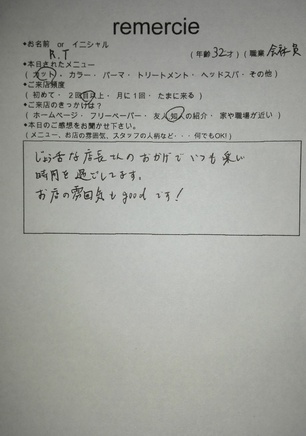 remercie
*お名前 or イニシャル
R.T (年齢 32才)(職業 会社員
*本日されたメニュー
(カット・カラー・パーマ・トリートメント・ヘッドスパ・その他)
*ご来店頻度
(初めて・2回目以上・月に1回・たまに来る)
*ご来店のきっかけは?
(ホームページ・フリーペーパー・友人知人の紹介・家や職場が近い)
*本日のご感想をお聞かせ下さい。
(メニュー、お店の雰囲気、スタッフの人柄など・・・何でもOK!)
じょう舌な店長さんのおかげでいつも楽しい
時間を過ごしてます。
お店の雰囲気もgoodです!